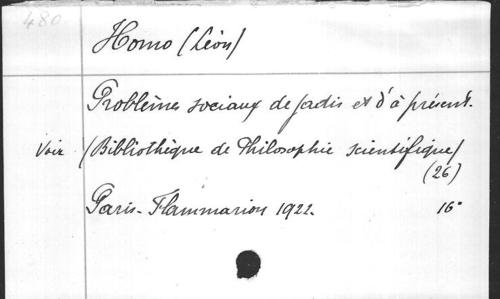 480
Homo (Léon)
Problèmes sociaux de jadis et d'à présent.
Voir (Bibliothèque de Philosophie scientifique)
(26)
Paris - Flammarion 1922. 16°